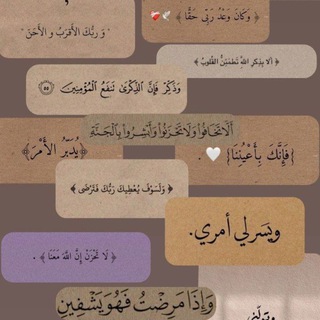 " و ربك الأقرب و الأحق "
﴿ وَكَانَ وَعْدُ رَبِّي حَقًّا ﴾
﴿ أَلَا بِذِكْرِ اللَّهِ تَطْمَئِنُّ الْقُلُوبُ ﴾
وَذَكِّرْ فَإِنَّ الذِّكْرَىٰ تَنفَعُ الْمُؤْمِنِينَ ٥٥
أَلَّا تَخَافُوا وَلَا تَحْزَنُوا وَأَبْشِرُوا بِالْجَنَّةِ
﴿يُدَبِّرُ الأَمْرَ﴾
{فَإِنَّكَ بِأَعْيُنِنَا} 🤍 .
﴿ وَلَسَوْفَ يُعْطِيكَ رَبُّكَ فَتَرْضَى ﴾
ويَسرلي أمري.
﴿ لَا تَحْزَنْ إِنَّ اللَّهَ مَعَنَا ﴾ .
وَإِذَا مَرِضْتُ فَهُوَ يَشْفِينِ